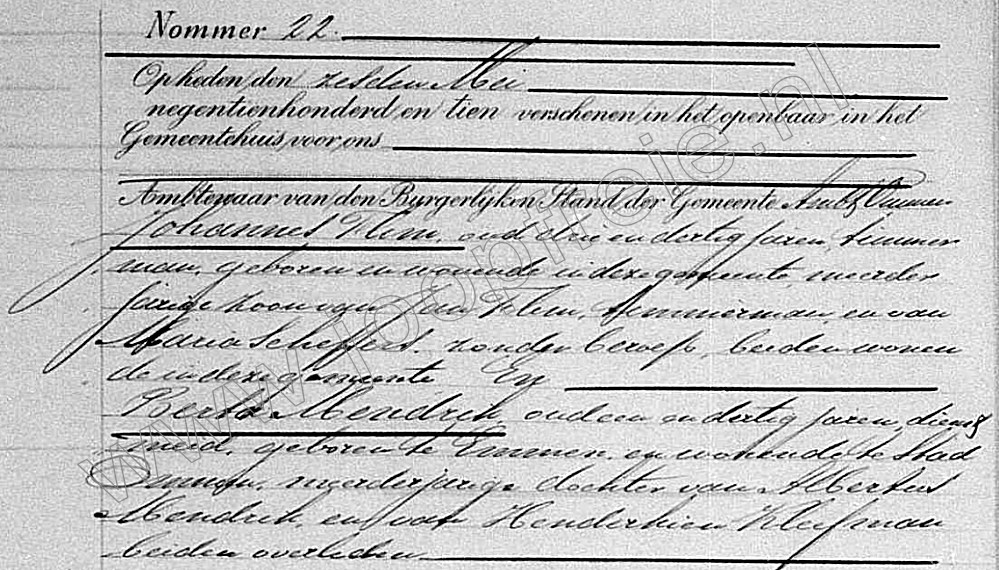 Nommer 22.
Op heden den zesden Mei
negentienhonderd en tien verschenen in het openbaar in het
Gemeentehuis, voor ons
Ambtenaar van den Burgerlijken Stand der Gemeente Ambt Ommen
Johannes Flim, oud drie en dertig jaren, timmer
man, geboren en wonende in deze gemeente, meerder
jarige zoon van Jan Flim, timmerman, en van
Maria Scheffers, zonder beroep, beiden wonen
de in deze gemeente En
Berta Mendrik, oud een en dertig jaren, dienst
meid, geboren te Emmen, en wonende te Stad
Ommen, meerderjarige dochter van Albertus
Mendrik, en van Henderkien
beiden overleden
www.jooptreie.nl